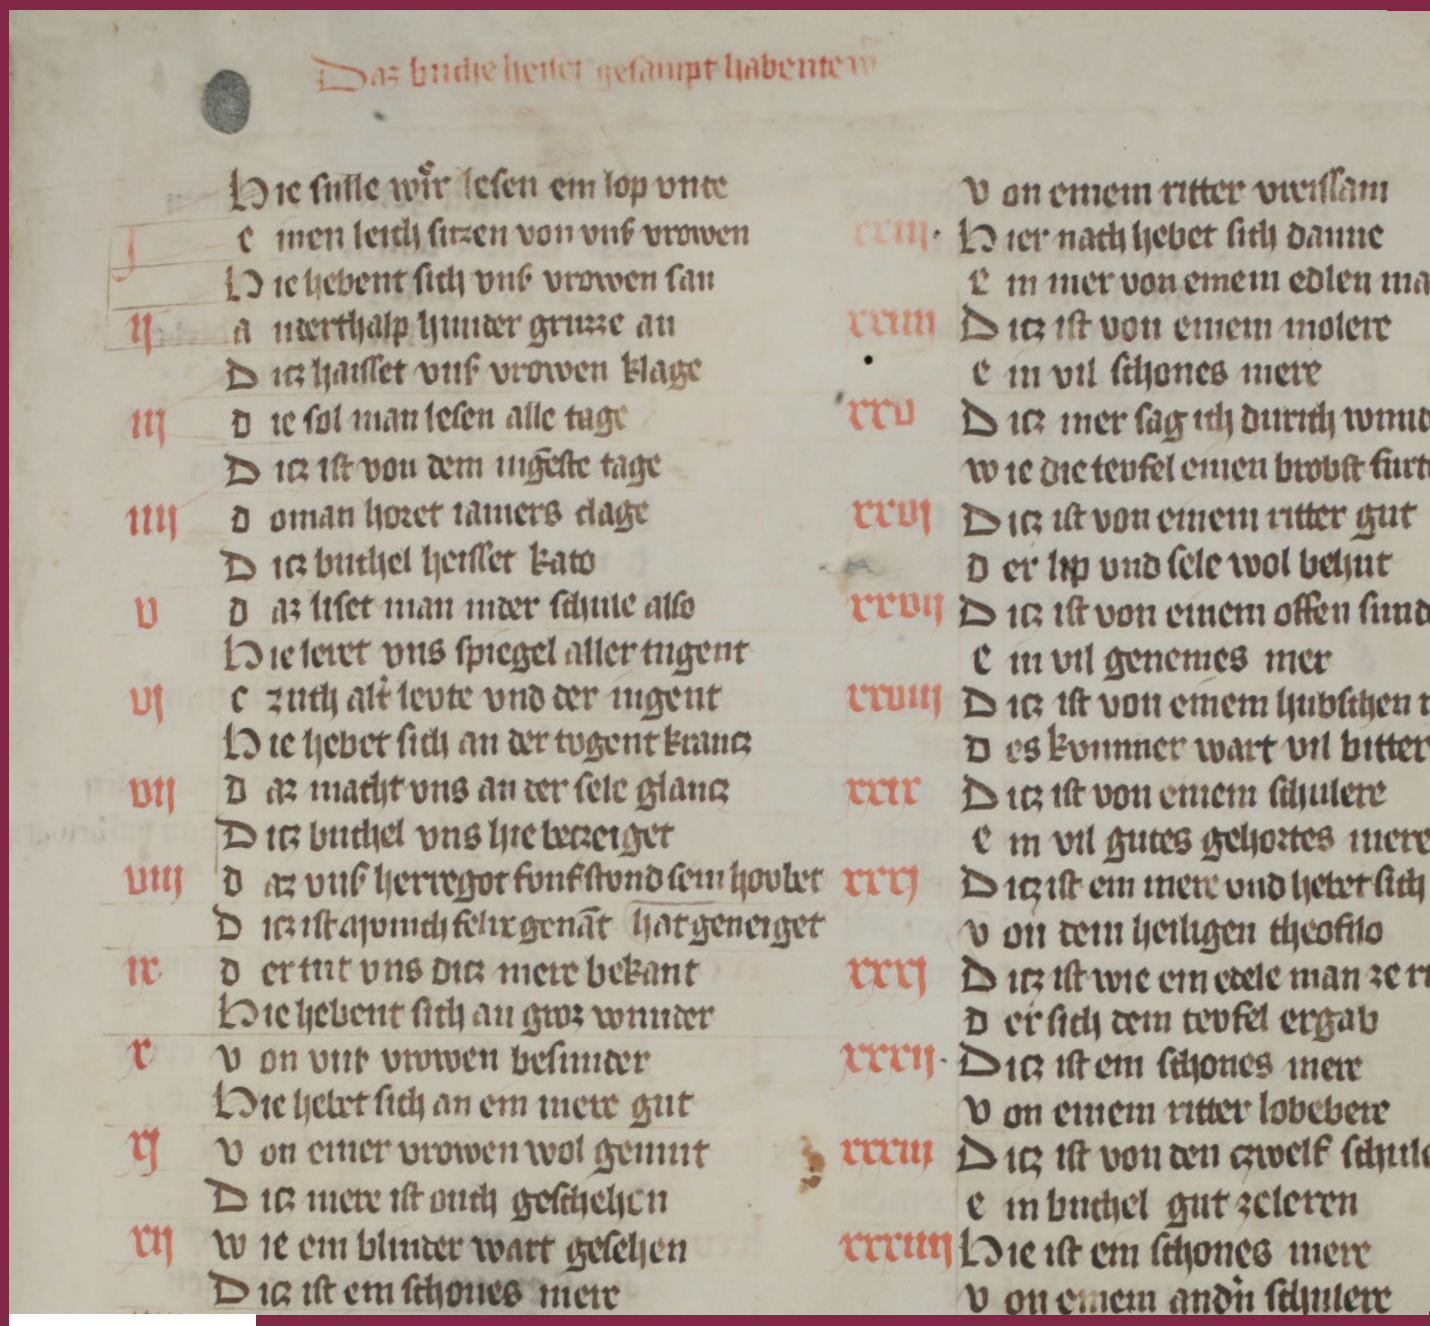 Daz buch heiset gesampt habentewr
Hie sulle wir lesen ein lop vnte
j e inen leich sitzen von vns vrowen
Hie hebent sich vns vrowen san
ij a nderthalp hunder gruzze an
Ditz haisset vns vrowen klage
iij d ie sol man lesen alle tage
Ditz ist von dem iungeste tage
iiij d o man horet iamers clage
Ditz buchel heisset kato
v d az liset man inder schule also
Hie leret vns spiegel aller tugent
vj e zuch alt levte vnd der iugent
Hie hebet sich an der tvgent krantz
vij d az macht vns an der sele glantz
Ditz buchel vns hie betzeiget
viij d az vns herregot fvnfstvnd sein hovbet
Ditz ist mvnich felix genāt hat geneiget
ix d er tut vns ditz mere bekant
Hie hebent sich an groz wunder
x v on vns vrowen besunder
Hie hebet sich an ein mere gut
xj v on einer vrowen wol gemut
Ditz mere ist ouch geschehen
xij w ie ein blinder wart gesehen
Ditz ist ein schones mere
v on einem ritter vreissam
xxiij. Hier nach hebet sich danne
e in mer von einem edlen ma
xxiiij Ditz ist von einem molere
e in vil schones mere
xxv Ditz mer sag ich durich wund
w ie die tevfel einen brobst furt
xxvj Ditz ist von einem ritter gut
d er lip vnd sele wol behut
xxvij Ditz ist von einem offen sund
e in vil genemes mer
xxviij Ditz ist von einem hubschen r
d es kvmmer wart vil bitter
xxix Ditz ist von einem schulere
e in vil gutes gehortes mere
xxxj Ditz ist ein mere vnd hebet sich
v on dem heiligen theofilo
xxxj Ditz ist wie ein edele man ze ri
d er sich dem tevfel ergab
xxxij. Ditz ist ein schones mere
v on einem ritter lobebere
xxxiij Ditz ist von den czwelf schule
e in buchel gut zeleren
xxxiiij Hie ist ein schones mere
v on einem andn schulere